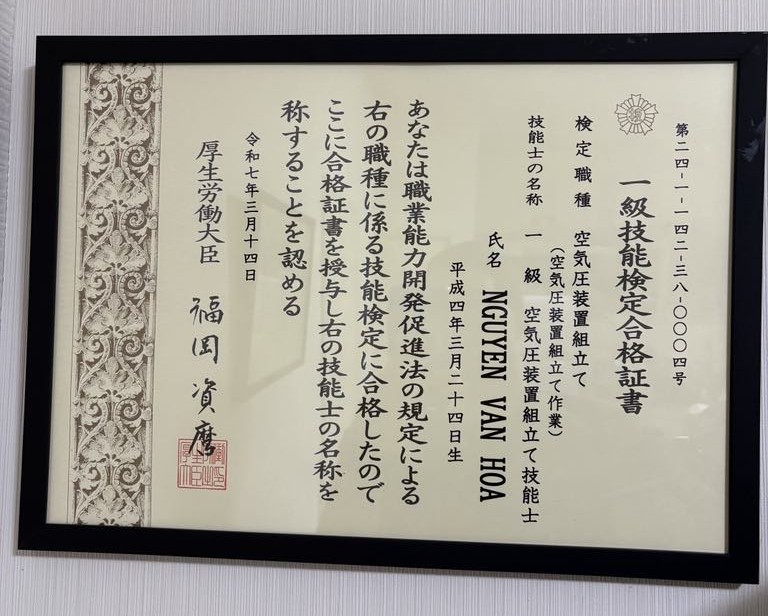 第二四-一-一四二-三八-〇〇〇四号
一級技能検定合格証書
検定職種 空気圧装置組立て
(空気圧装置組立て作業)
技能士の名称 一級 空気圧装置組立て技能士
氏名 NGUYEN VAN HOA
平成四年三月二十四日生
あなたは職業能力開発促進法の規定による
右の職種に係る技能検定に合格したので
ここに合格証書を授与し右の技能士の名称を
称することを認める
令和七年三月十四日
厚生労働大臣 福岡資麿